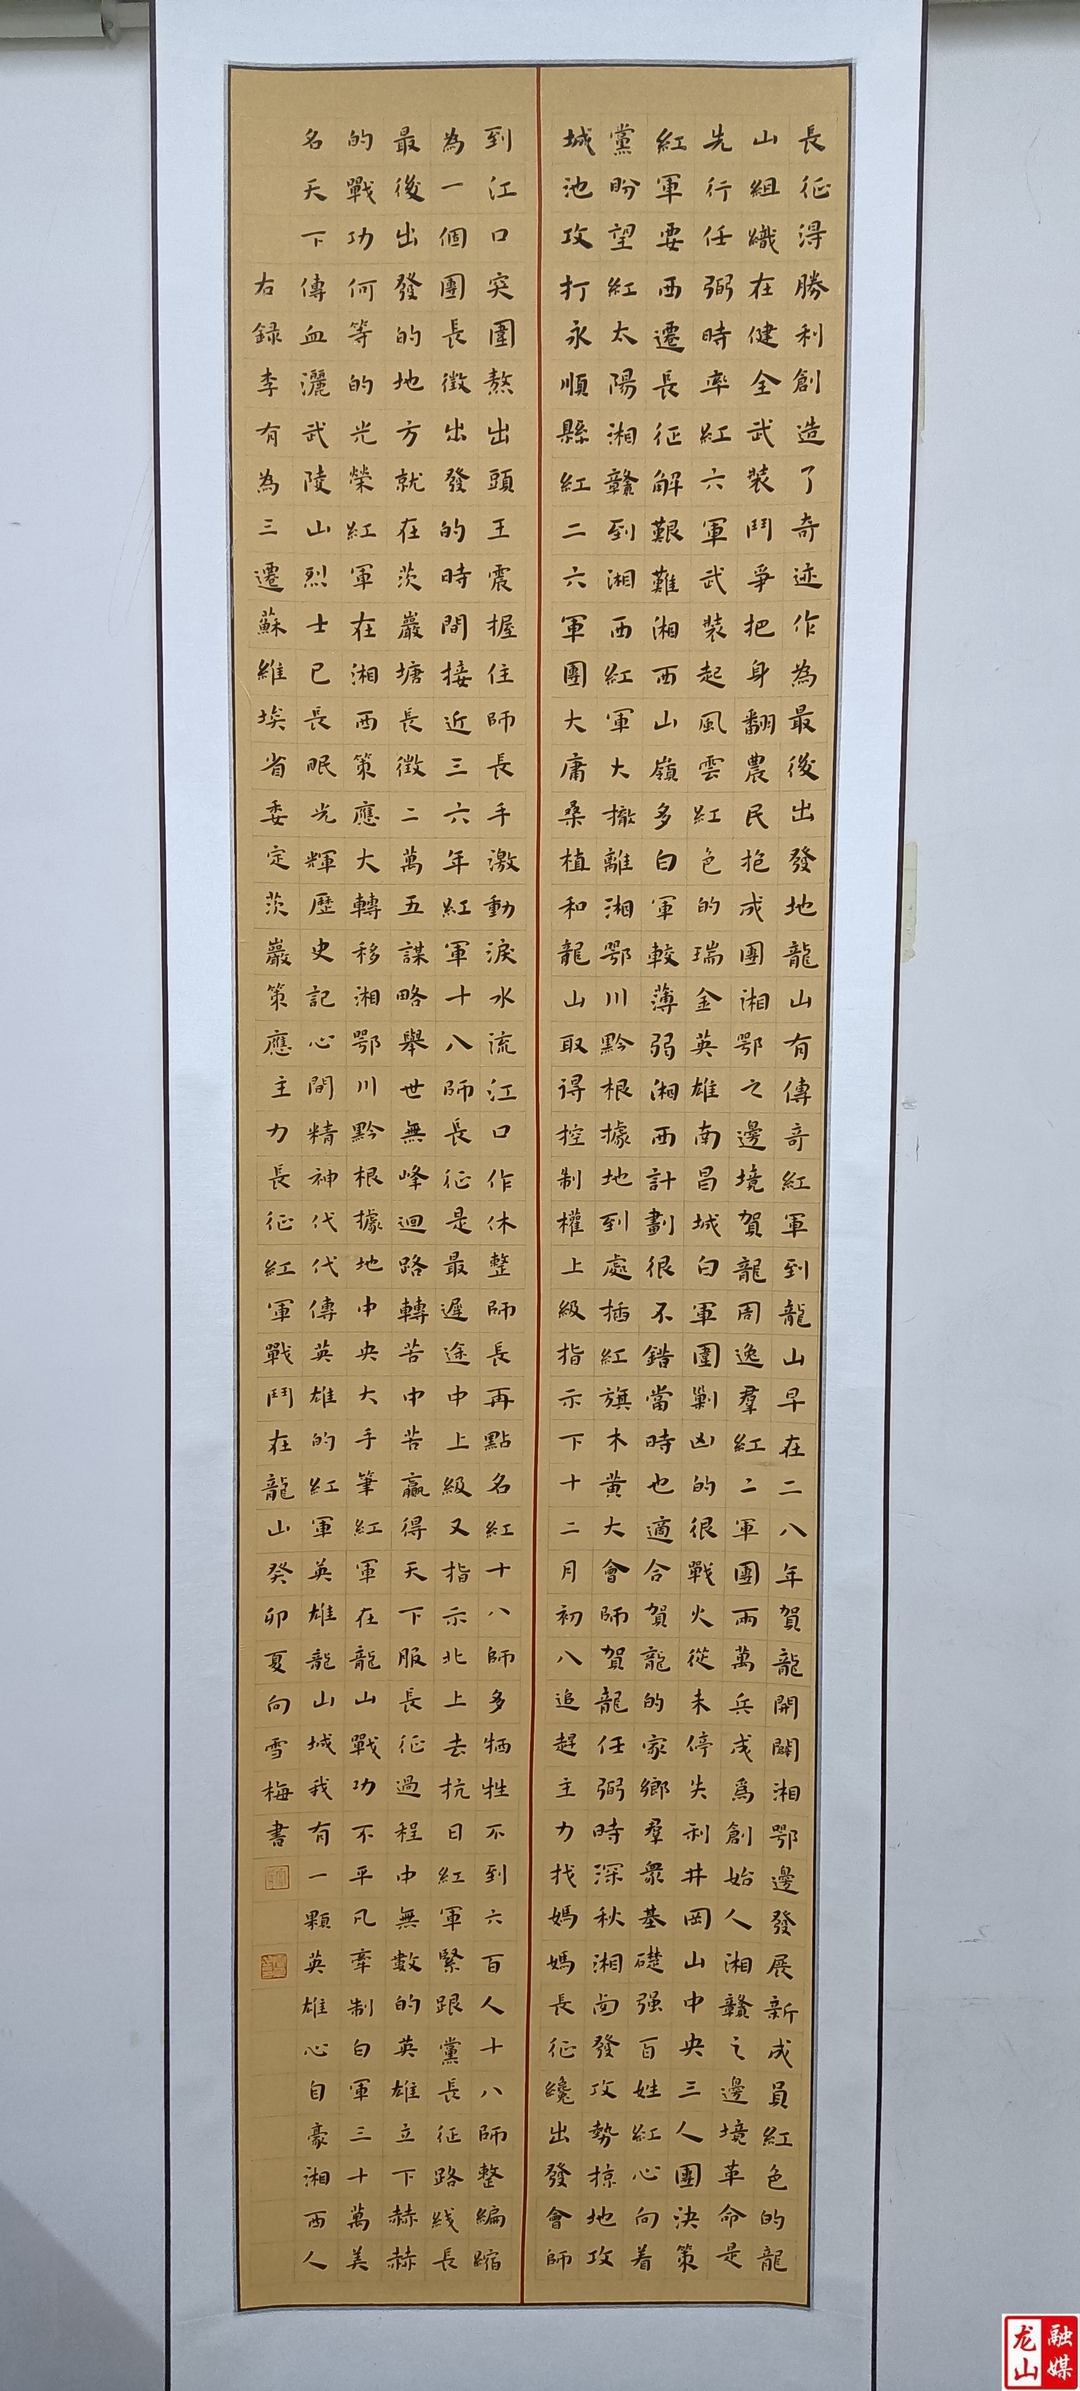 長征得勝利創造了奇迹作為最後出發地龍山有傳奇紅軍到龍山早在二八年賀龍開闢湘鄂邊發展新成員紅色的龍
山組織在健全武裝鬥爭把身翻農民抱成團湘鄂之邊境賀龍周逸羣紅二軍團兩萬兵成爲創始人湘贛之邊境革命是
先行任弼時率紅六軍武裝起風雲紅色的瑞金英雄南昌城白軍圍剿凶的很戰火從未停失利井岡山中央三人團決策
紅軍要西遷長征解艱難湘西山嶺多白軍較薄弱湘西計劃很不錯當時也適合賀龍的家鄉羣衆基礎强百姓紅心向着
黨盼望紅太陽湘贛到湘西紅軍大撤離湘鄂川黔根據地到處插紅旗木黄大會師賀龍任弼時深秋湘西發攻勢掠地攻
城池攻打永順縣紅二六軍團大庸桑植和龍山取得控制權上級指示下十二月初八追趕主力找媽媽長征纔出發會師
到江口突圍熬出頭王震握住師長手激動淚水流江口作休整師長再點名紅十八師多牺牲不到六百人十八師整編縮
為一個團長徵出發的時間接近三六年紅軍十八師長征是最遲途中上級又指示北上去抗日紅軍緊跟黨長征路綫長
最後出發的地方就在茨巖塘長徵二萬五謀略舉世無峰迴路轉苦中苦贏得天下服長征過程中無數的英雄立下赫赫
的戰功何等的光榮紅軍在湘西策應大轉移湘鄂川黔根據地中央大手筆紅軍在龍山戰功不平凡牽制白軍三十萬美
名天下傳血灑武陵山烈士已長眠光輝歷史記心間精神代代傳英雄的紅軍英雄龍山城我有一顆英雄心自豪湘西人
右録李有為三遷蘇維埃省委定茨巖策應主力長征紅軍戰鬥在龍山癸卯夏向雪梅書
龙山
融媒